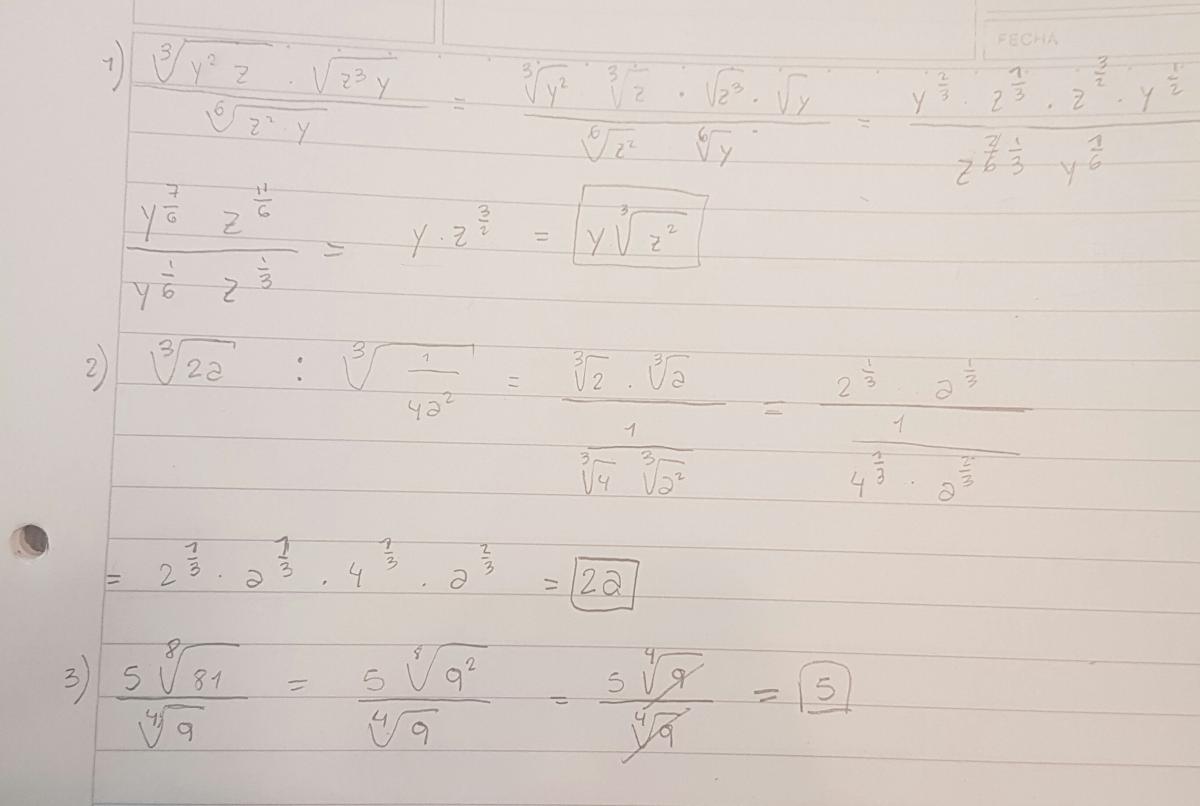 FECHA
1) ∛(y² z) · √(z³ y) / ⁶√(z² · y) = ∛(y²) ∛z · √(z³) · √y / ⁶√(z²) ⁶√y = y^(2/3) · z^(1/3) · z^(3/2) · y^(1/2) / z^(2/6) ^(1/3) y^(1/6)
y^(7/6) z^(11/6) / y^(1/6) z^(1/3) = y · z^(3/2) = y ∛(z²)
2) ∛(2a) : ∛(1/(4a²)) = ∛2 · ∛a / (1 / ∛4 ∛(a²)) = 2^(1/3) · a^(1/3) / (1 / 4^(1/3) · a^(2/3))
= 2^(1/3) · a^(1/3) · 4^(1/3) · a^(2/3) = 2a
3) 5 ⁸√81 / ⁴√9 = 5 ⁸√(9²) / ⁴√9 = 5 ⁴√9 / ⁴√9 = 5